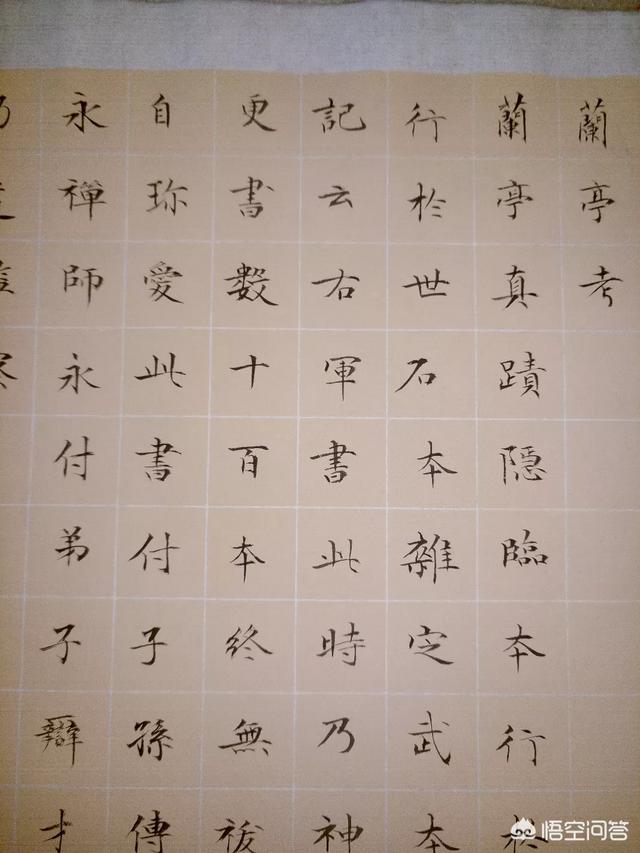 蘭亭考
蘭亭真蹟隱臨本行於
行於世石本雜定武本
記云右軍書此時乃神
更書數十百本終無祓
自珍愛此書付子孫傳
永禪師永付弟子辯才
乃
悟空问答